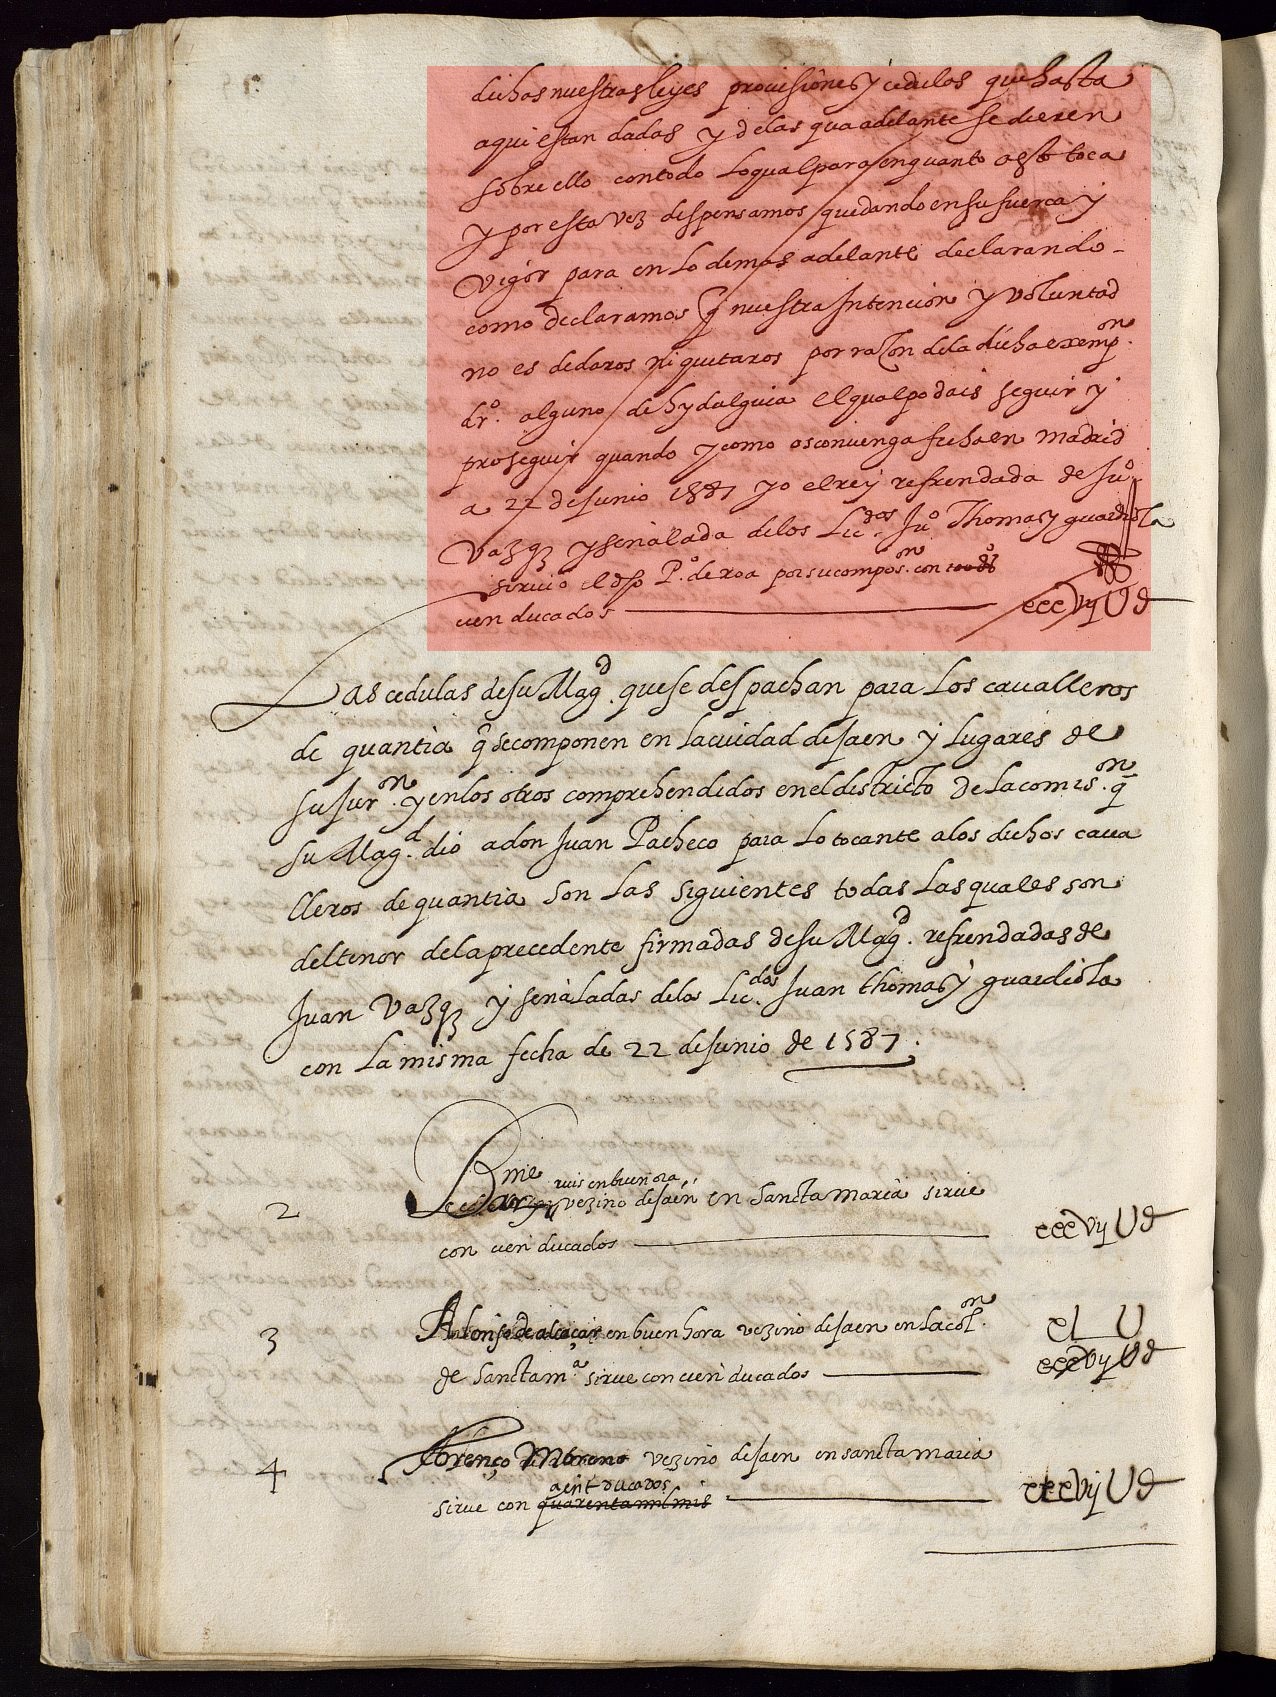 dichas nuestras leyes provisiones y cedulas que hasta
aqui estan dadas y de las que adelante se dieren
sobre ello con todo lo qual para en quanto a esto toca
y por esta vez despensamos quedando en su fuerça y
vigor para en lo demas adelante declarando
como declaramos q̃ nuestra intencion y voluntad
no es de daros ni quitaros por razon de la dicha exempon.
dro. alguno de hydalguia el qual podais seguir y
proseguir quando y como os convenga fecha en madrid
a 22 de Junio 1587 yo el rey refrendada de Juo.
Vazqz y señalada de los Licdos. Juo Thomas y guardiola
sirvio el dho Po. de roa por su compon. con
cien ducados cccvijUd
Las cedulas de su Magd. que se despachan para los cavalleros
de quantia q̃ se componen en la ciudad de Jaen y lugares de
su Juron. y en los otros comprehendidos en el districto de la comison. q̃
su Magd. dio a don Juan Pacheco para lo tocante a los dichos cava
lleros de quantia son las siguientes todas las quales son
del tenor de la precedente firmadas de su Magd. refrendadas de
Juan Vazqz y señaladas de los Licdos. Juan thomas y guardiola
con la misma fecha de 22 de Junio de 1587.
Bme
ruis en buen ora
2 vezino de Jaen en Sancta maria sirve
con cien ducados cccvijUd
3 Alonso de alcaçar en buen hora vezino de Jaen en la col on. cl U
de Sancta ma. sirve con cien ducados cccvijUd
4 lorenço Moreno vezino de Jaen en sancta maria
cient ducados
sirve con quarenta mill mrs cccvijUd